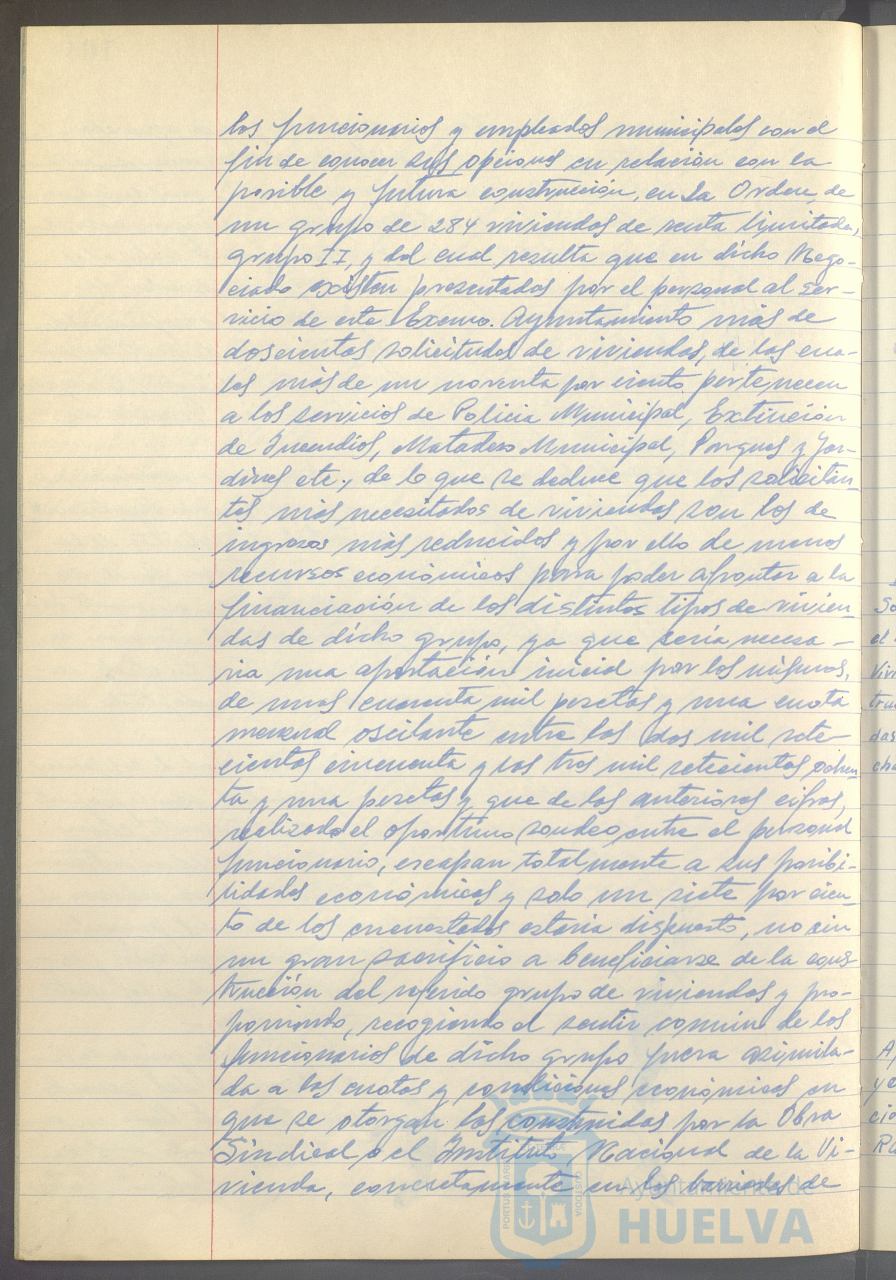 los funcionarios y empleados municipales con el
fin de conocer sus opciones en relación con la
posible y futura construcción, en La Orden, de
un grupo de 284 viviendas de renta limitada,
grupo II, y del cual resulta que en dicho Nego-
ciado existen presentadas por el personal al ser-
vicio de este Excmo. Ayuntamiento más de
doscientas solicitudes de viviendas, de las cua-
les más de un noventa por ciento pertenecen
a los servicios de Policia Municipal, Extinción
de Incendios, Matadero Municipal, Parques y Jar-
dines etc., de lo que se deduce que los solicitan-
tes más necesitados de viviendas son los de
ingresos más reducidos y por ello de menos
recursos económicos para poder afrontar a la
financiación de los distintos tipos de vivien-
das de dicho grupo, ya que sería necesa-
ria una aportación inicial por los mismos,
de unas cuarenta mil pesetas y una cuota
mensual oscilante entre las dos mil sete-
cientas cincuenta y las tres mil setecientas ochen-
ta y una pesetas y que de las anteriores cifras,
realizado el oportuno sondeo entre el personal
funcionario, escapan totalmente a sus posibi-
lidades económicas y solo un siete por cien-
to de los encuestados estaria dispuesto, no sin
un gran sacrificio a beneficiarse de la cons-
trucción del referido grupo de viviendas y pro-
poniendo, recogiendo el sentir común de los
funcionarios de dicho grupo fuera asimila-
da a las cuotas y condiciones económicas en
que se otorgan las construidas por la Obra
Sindical o el Instituto Nacional de la Vi-
vienda, concretamente en las barriadas de
Ayuntamiento de
HUELVA
PORTUS MARIS
CUSTODIA
So
el
Vivi
truc
das
cha
Ap
ye
cio
Ra